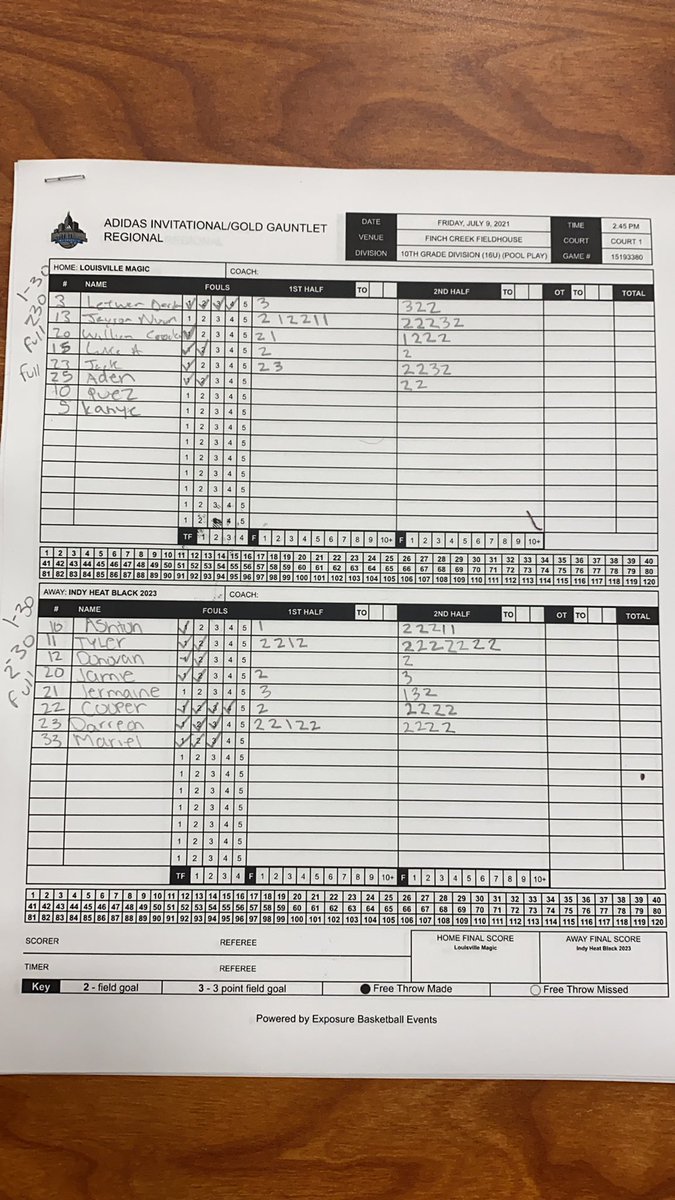 ADIDAS INVITATIONAL/GOLD GAUNTLET
REGIONAL
DATE FRIDAY, JULY 9, 2021 TIME 2:45 PM
VENUE FINCH CREEK FIELDHOUSE COURT COURT 1
DIVISION 10TH GRADE DIVISION (16U) (POOL PLAY) GAME # 15193380
HOME: LOUISVILLE MAGIC COACH:
# NAME FOULS 1ST HALF TO 2ND HALF TO OT TO TOTAL
1-30
230
Full
Full
3 1 2 3 4 5 3 322
13 1 2 3 4 5 212211 22232
20 William 1 2 3 4 5 21 1222
15 Luke A 1 2 3 4 5 2 2
23 Jack 1 2 3 4 5 23 2232
25 Aden 1 2 3 4 5 22
10 Quez 1 2 3 4 5
5 Kanye 1 2 3 4 5
1 2 3 4 5
1 2 3 4 5
1 2 3 4 5
1 2 3 4 5
1 2 3 4 5
1 2 3 4 5
1 2 3 4 5
TF 1 2 3 4 F 1 2 3 4 5 6 7 8 9 10+ F 1 2 3 4 5 6 7 8 9 10+
1 2 3 4 5 6 7 8 9 10 11 12 13 14 15 16 17 18 19 20 21 22 23 24 25 26 27 28 29 30 31 32 33 34 35 36 37 38 39 40
41 42 43 44 45 46 47 48 49 50 51 52 53 54 55 56 57 58 59 60 61 62 63 64 65 66 67 68 69 70 71 72 73 74 75 76 77 78 79 80
81 82 83 84 85 86 87 88 89 90 91 92 93 94 95 96 97 98 99 100 101 102 103 104 105 106 107 108 109 110 111 112 113 114 115 116 117 118 119 120
AWAY: INDY HEAT BLACK 2023 COACH:
# NAME FOULS 1ST HALF TO 2ND HALF TO OT TO TOTAL
1-30
2-30
Full
10 Ashton 1 2 3 4 5 1 22211
11 Tyler 1 2 3 4 5 2212 2222222
12 Donovan 1 2 3 4 5 2
20 Jamie 1 2 3 4 5 2 3
21 Jermaine 1 2 3 4 5 3 132
22 Couper 1 2 3 4 5 2 2222
23 Darreon 1 2 3 4 5 22122 2222
33 Mariel 1 2 3 4 5
1 2 3 4 5
1 2 3 4 5
1 2 3 4 5
1 2 3 4 5
1 2 3 4 5
1 2 3 4 5
1 2 3 4 5
TF 1 2 3 4 F 1 2 3 4 5 6 7 8 9 10+ F 1 2 3 4 5 6 7 8 9 10+
1 2 3 4 5 6 7 8 9 10 11 12 13 14 15 16 17 18 19 20 21 22 23 24 25 26 27 28 29 30 31 32 33 34 35 36 37 38 39 40
41 42 43 44 45 46 47 48 49 50 51 52 53 54 55 56 57 58 59 60 61 62 63 64 65 66 67 68 69 70 71 72 73 74 75 76 77 78 79 80
81 82 83 84 85 86 87 88 89 90 91 92 93 94 95 96 97 98 99 100 101 102 103 104 105 106 107 108 109 110 111 112 113 114 115 116 117 118 119 120
SCORER REFEREE HOME FINAL SCORE AWAY FINAL SCORE
Louisville Magic Indy Heat Black 2023
TIMER REFEREE
Key 2 - field goal 3 - 3 point field goal Free Throw Made Free Throw Missed
Powered by Exposure Basketball Events